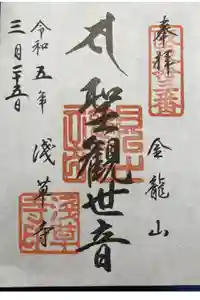 奉拝
金龍山
聖観世音
浅草寺
令和五年
三月二十五日